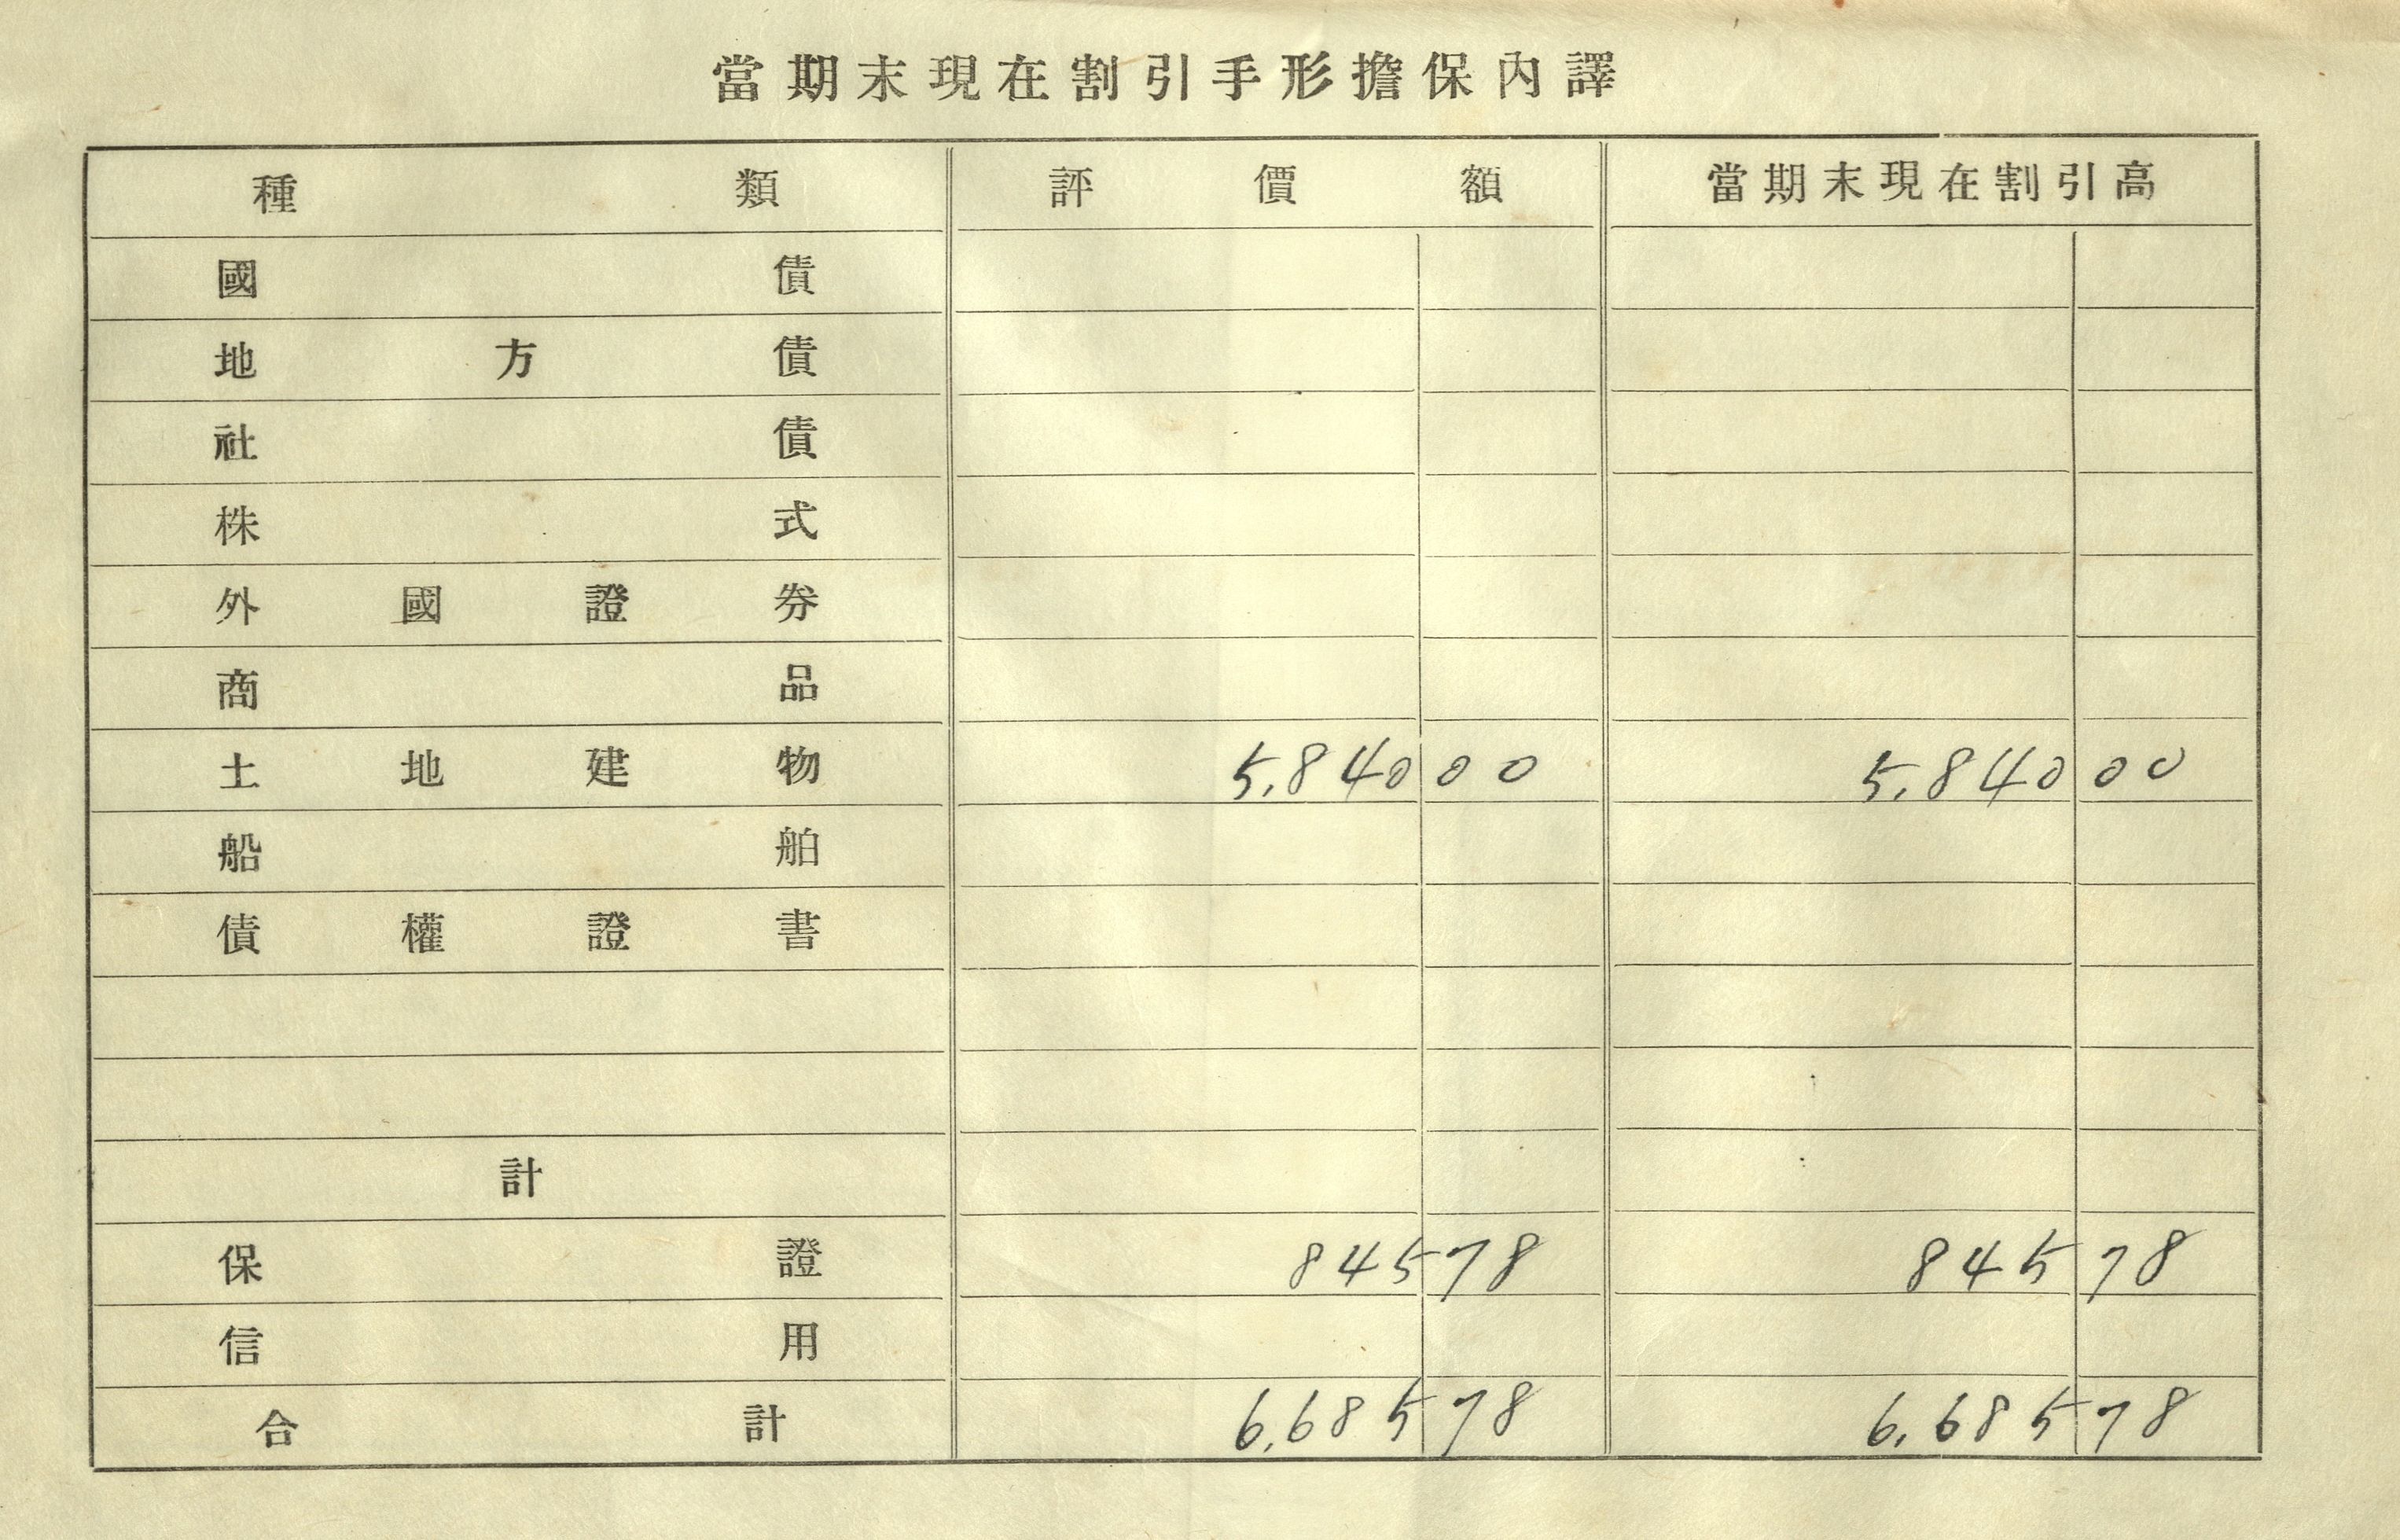 當期末現在割引手形擔保內譯
種類 評價額 當期末現在割引高
國債
地方債
社債
株式
外國證券
商品
土地建物 5,840 00 5,840 00
船舶
債權證書
計
保證 845 78 845 78
信用
合計 6,685 78 6,685 78